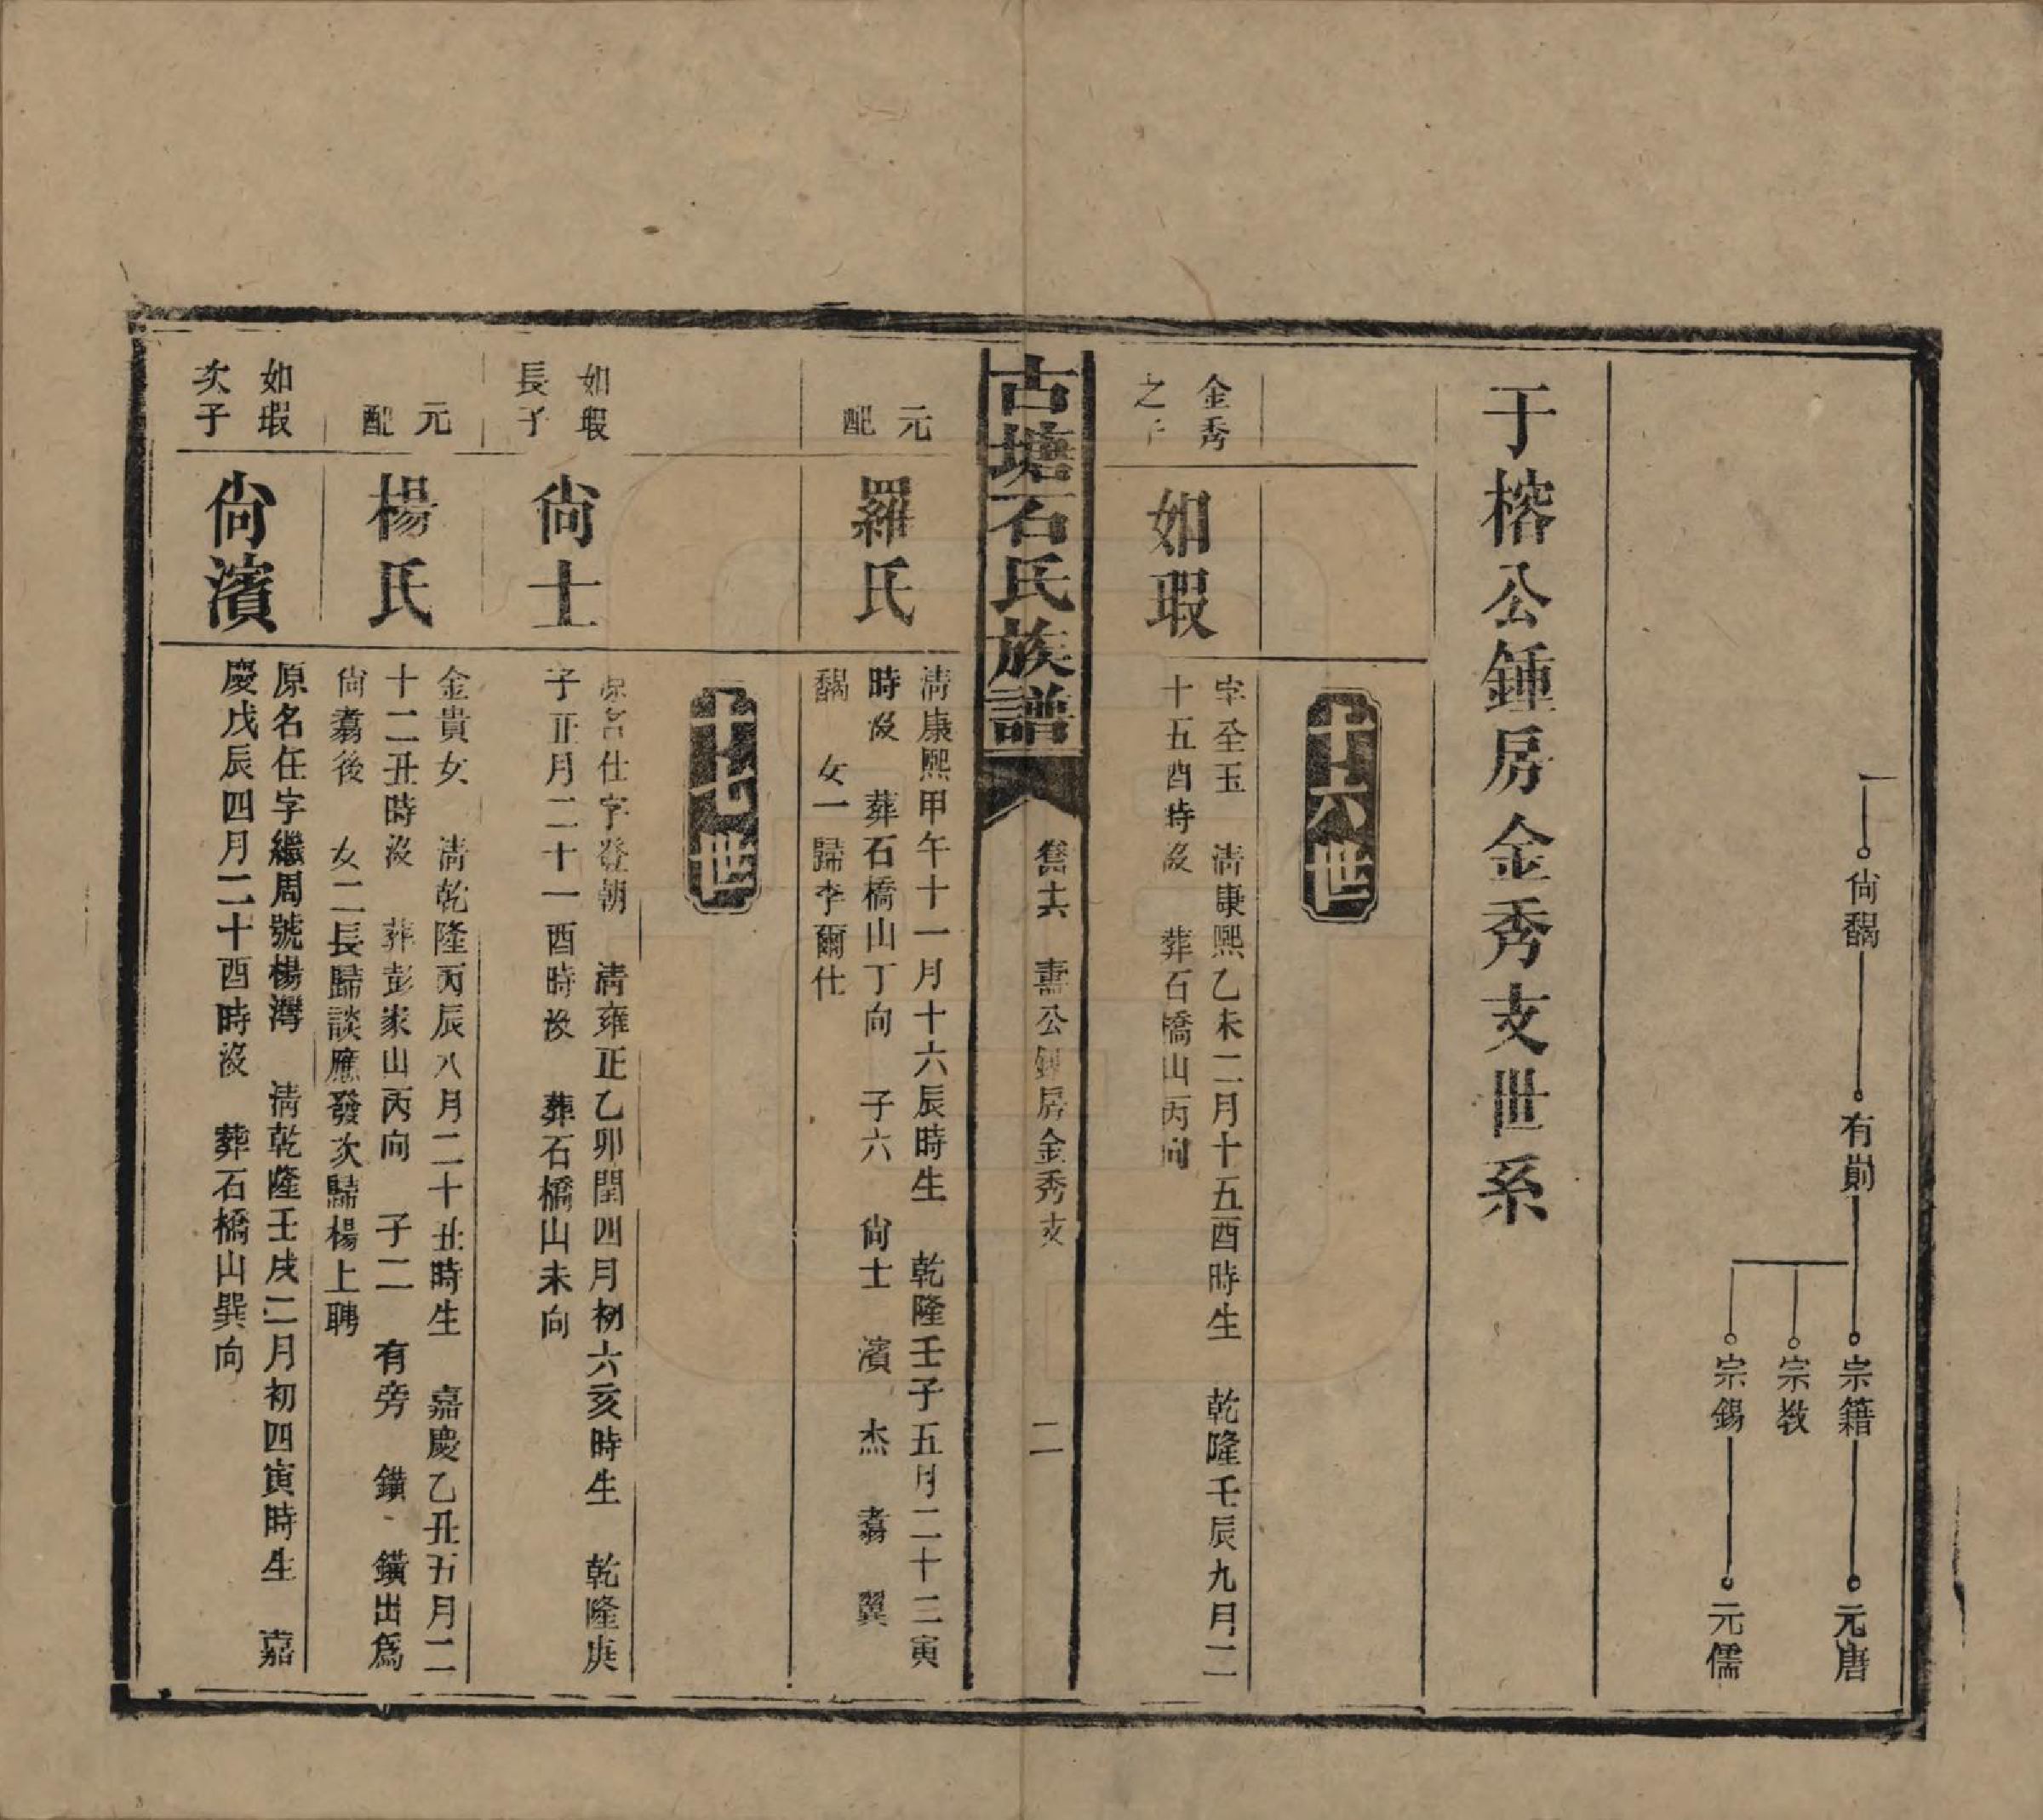 尙
有
宗籍
元唐
宗敎
宗錫
元儒
于榕公鍾房金秀支世系
十六世
金秀
之子
如瑕
字全玉 淸康熙乙未二月十五酉時生 乾隆壬辰九月二
十五酉時歿 葬石橋山丙向
古塘石氏族譜
卷十六 燾公鍾房金秀支
二
元
配
羅氏
淸康熙甲午十一月十六辰時生 乾隆壬子五月二十三寅
時歿 葬石橋山丁向 子六 尙士 濱 杰 翥 翼
女一歸李爾仕
十七世
如瑕
長子
尙士
原名仕字登朝 淸雍正乙卯閏四月初六亥時生 乾隆庚
子正月二十一酉時歿 葬石橋山未向
元
配
楊氏
金貴女 淸乾隆丙辰八月二十丑時生 嘉慶乙丑五月二
十二丑時歿 葬彭家山丙向 子二 有旁 鐄 鐄出爲
尙翥後 女二長歸談應發次歸楊上聘
如瑕
次子
尙濱
原名任字繼周號楊灣 淸乾隆壬戌二月初四寅時生 嘉
慶戊辰四月二十酉時歿 葬石橋山巽向